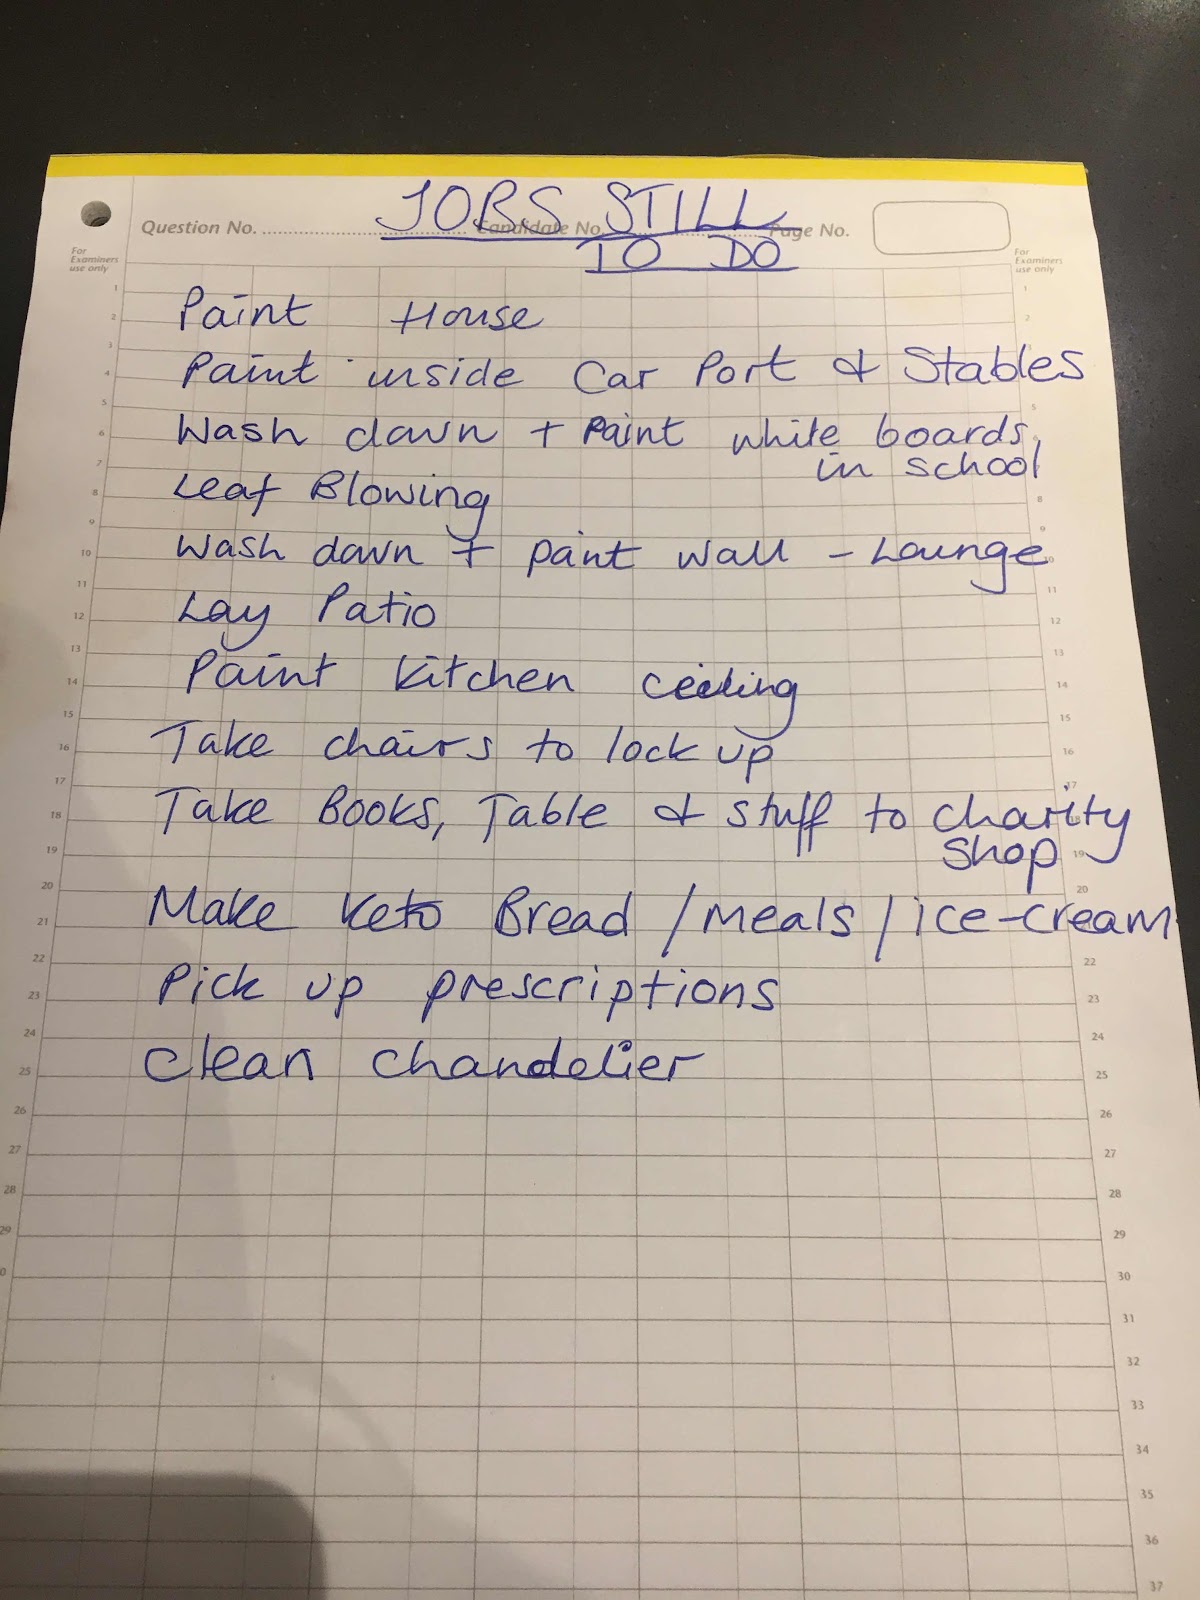 JOBS STILL
Question No. Candidate No. Page No.
TO DO
For Examiners use only
For Examiners use only
Paint House
Paint inside Car Port & Stables
Wash down + Paint white boards
in school
Leaf Blowing
Wash down + paint wall - Lounge
Lay Patio
Paint kitchen ceiling
Take chairs to lock up
Take Books, Table & stuff to charity
shop
Make keto Bread / meals / ice-cream
Pick up prescriptions
Clean chandelier
1 1
2 2
3
4
5 5
6
7
8 8
9 9
10 10
11 11
12 12
13 13
14 14
15 15
16 16
17 17
18 18
19 19
20 20
21
22 22
23 23
24 24
25 25
26 26
27 27
28 28
29 29
0 30
31
32
33
34
35
36
37